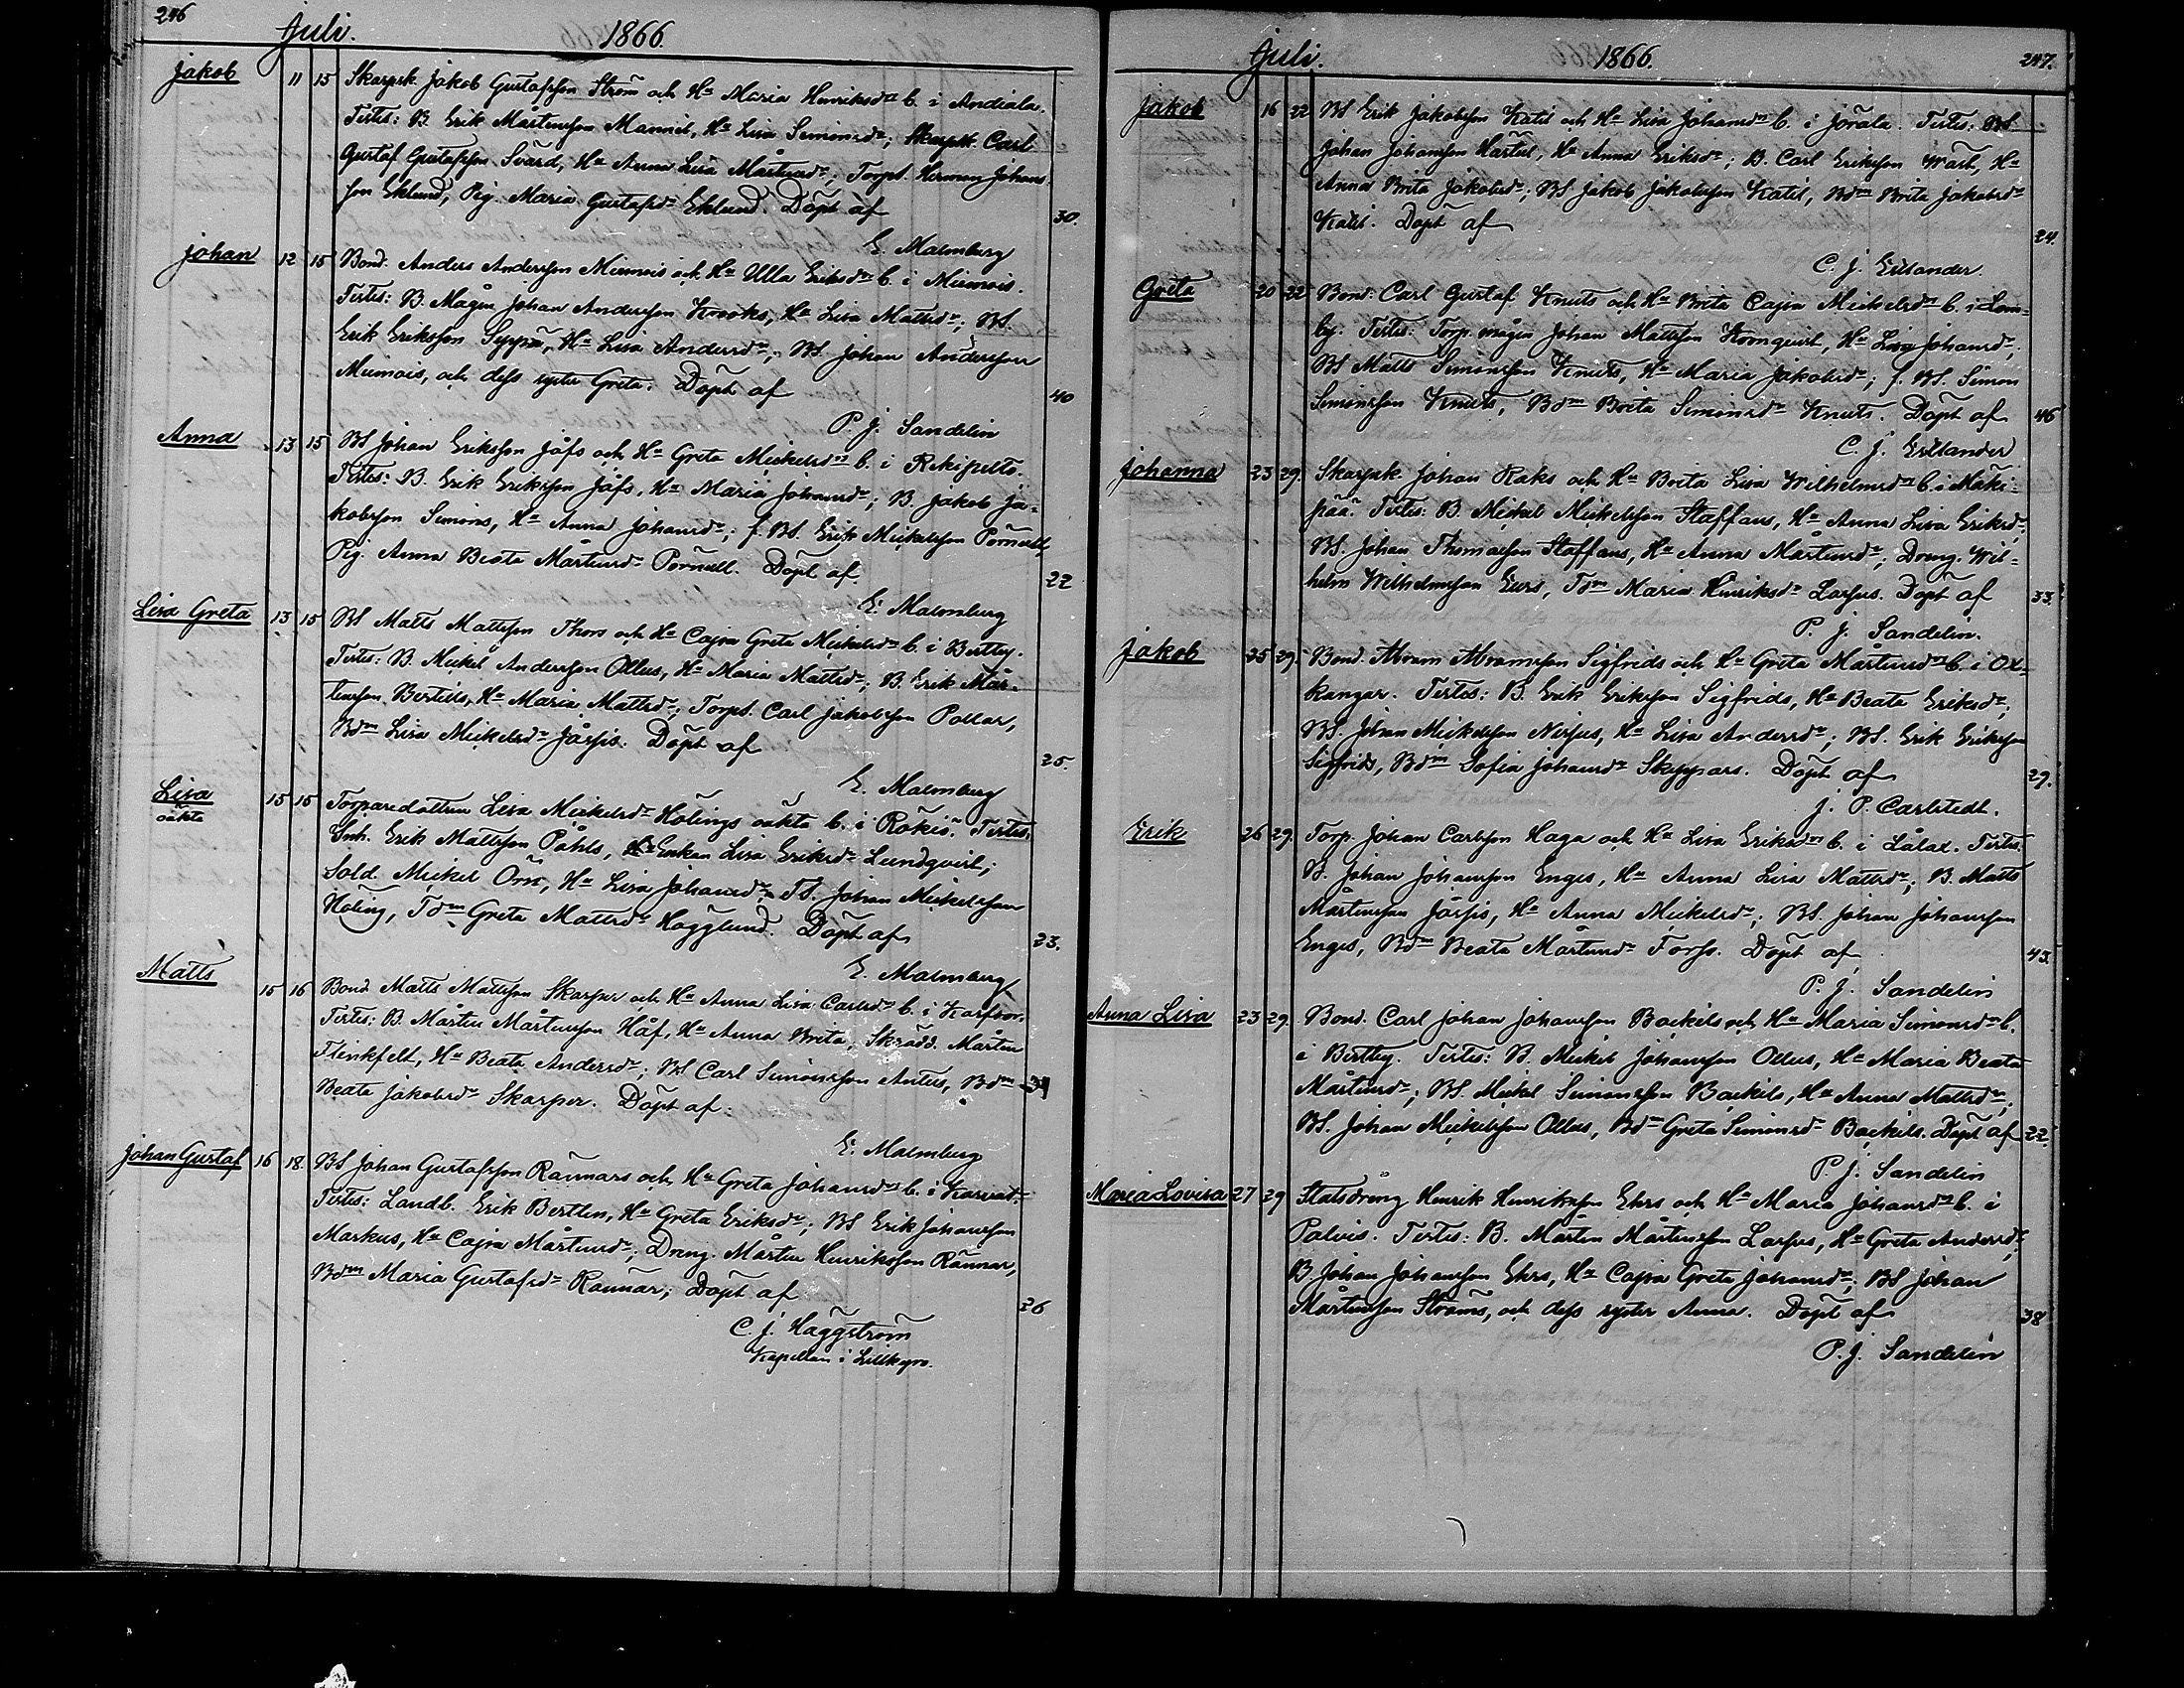 246 Juli. 1866.
Jakob 11 15 Skarpsk. Jakob Gustafsson Ström och Hu Maria Henriksdr b. i Andiala.
Testes: B. Erik Mårtensson Mannil, Hu Lisa Simonsdr; Skarpsk. Carl
Gustaf Gustafsson Svärd, Hu Anna Lisa Mårtensdr; Torps. Herman Johans-
son Eklund, Pig. Maria Gustafsdr Eklund. Döpt af 30.
E. Malmberg
Johan 12 15 Bond. Anders Andersson Miemois och Hu Ulla Eriksdr b. i Miemois.
Testes: B. Mågen Johan Andersson Krooks, Hu Lisa Mattsdr; BS.
Erik Eriksson Seppä, Hu Lisa Andersdr; BS. Johan Andersson
Miemois, och dess syster Greta. Döpt af 40
P. J. Sandelin
Anna 13 15 BS Johan Eriksson Jåfs och Hu Greta Mickelsdr b. i Rekipelto.
Testes: B. Erik Eriksson Jåfs, Hu Maria Johansdr; B. Jakob Ja-
kobsson Simons, Hu Anna Johansdr; f. BS. Erik Mickelsson Pernull,
Pig. Anna Beata Mårtensdr Pernull. Döpt af 22
E. Malmberg
Lisa Greta 13 15 BS Matts Mattsson Thors och Hu Cajsa Greta Mickelsdr b. i Bertby.
Testes: B. Mickel Andersson Ollus, Hu Maria Mattsdr; B. Erik Mår-
tensson Bertils, Hu Maria Mattsdr; Torps. Carl Jakobsson Pollar,
Bdm Lisa Mickelsdr Jåfsis. Döpt af 25.
E. Malmberg
Lisa 15 15 Torparedottren Lisa Mickelsdr Hölings oäkta b. i Rökiö. Testes:
oäkta
Inh. Erik Mattsson Påhls, Enkan Lisa Eriksdr Lundqvist;
Sold. Mickel Örn, Hu Lisa Johansdr; TS. Johan Mickelsson
Höling, Tdm Greta Mattsdr Högglund. Döpt af 23.
E. Malmberg
Matts 15 16 Bond Matts Mattsson Skarper och Hu Anna Lisa Carlsdr b. i Karfsor.
Testes: B. Mårten Mårtensson Håf, Hu Anna Brita; Skrädd. Mårten
Flinkfelt, Hu Beata Andersdr; BS Carl Simonsson Antus, Bdm
Beata Jakobsdr Skarper. Döpt af:
E. Malmberg
Johan Gustaf 16 18. BS Johan Gustafsson Rannars och Hu Greta Johansdr b. i Karvat:
Testes: Landb. Erik Bertlin, Hu Greta Eriksdr; BS Erik Johansson
Markus, Hu Cajsa Mårtensdr; Dreng. Mårten Henriksson Rannar,
Bdm Maria Gustafsdr Rannar; Döpt af 26
C. J. Häggström
Kapellan i Lillkyro.
Juli. 1866. 247.
Jakob 16 22 BS Erik Jakobsson Katil och Hu Lisa Johansdr b. i Jörala. Testes: BS
Johan Johansson Härtul, Hu Anna Eriksdr; B. Carl Eriksson Wäst, Hu
Anna Brita Jakobsdr; BS Jakob Jakobsson Katil, Bdm Brita Jakobsdr
Katil. Döpt af 24.
C. J. Estlander.
Greta 20 22 Bond: Carl Gustaf Knuts och Hu Brita Cajsa Mickelsdr b. i Lom-
by. Testes: Torp. mågen Johan Mattsson Kronqvist, Hu Lisa Johansdr;
BS Matts Simonsson Knuts, Hu Maria Jakobsdr; f. BS. Simon
Simonsson Knuts, Bdm Brita Simonsdr Knuts. Döpt af 46
C. J. Estlander
Johanna 23 29. Skarpsk. Johan Raks och Hu Brita Lisa Wilhelmsdr b. i Mäki-
pää. Testes: B. Mickel Mickelsson Staffans, Hu Anna Lisa Eriksdr;
BS. Johan Thomasson Staffans, Hu Anna Mårtensdr; Dreng. Wil-
helm Wilhelmsson Eurs, Tdm Maria Henriksdr Larsus. Döpt af 33.
P. J. Sandelin.
Jakob 25 29. Bond. Abram Abramsson Sigfrids och Hu Greta Mårtensdr b. i Ox-
kangar. Testes: B. Erik Eriksson Sigfrids, Hu Beata Eriksdr;
BS. Johan Mickelsson Nissus, Hu Lisa Andersdr; BS. Erik Eriksson
Sigfrids, Bdm Sofia Johansdr Skeppars. Döpt af 29.
J. P. Carlstedt.
Erik 26 29. Torp. Johan Carlsson Haga och Hu Lisa Eriksdr b. i Lålax. Testes:
B. Johan Johansson Enges, Hu Anna Lisa Mattsdr; B. Matts
Mårtensson Jåfsis, Hu Anna Mickelsdr; BS. Johan Johansson
Enges, Bdm Beata Mårtensdr Forss. Döpt af 43.
P. J. Sandelin
Anna Lisa 23 29. Bond. Carl Johan Johansson Backils och Hu Maria Simonsdr b.
i Bertby. Testes: B. Mickel Johansson Ollus, Hu Maria Beata
Mårtensdr; BS. Mickel Simonsson Backils, Hu Anna Mattsdr;
BS. Johan Mickelsson Ollus, Bdm Greta Simonsdr Backils. Döpt af 22.
P. J. Sandelin
Maria Lovisa 27 29 Statsdräng Henrik Henriksson Ehrs och Hu Maria Johansdr b. i
Palvis. Testes: B. Mårten Mårtensson Larsus, Hu Greta Andersdr;
B. Johan Johansson Ehrs, Hu Cajsa Greta Johansdr; BS Johan
Mårtensson Ströms, och dess syster Anna. Döpt af 38
P. J. Sandelin